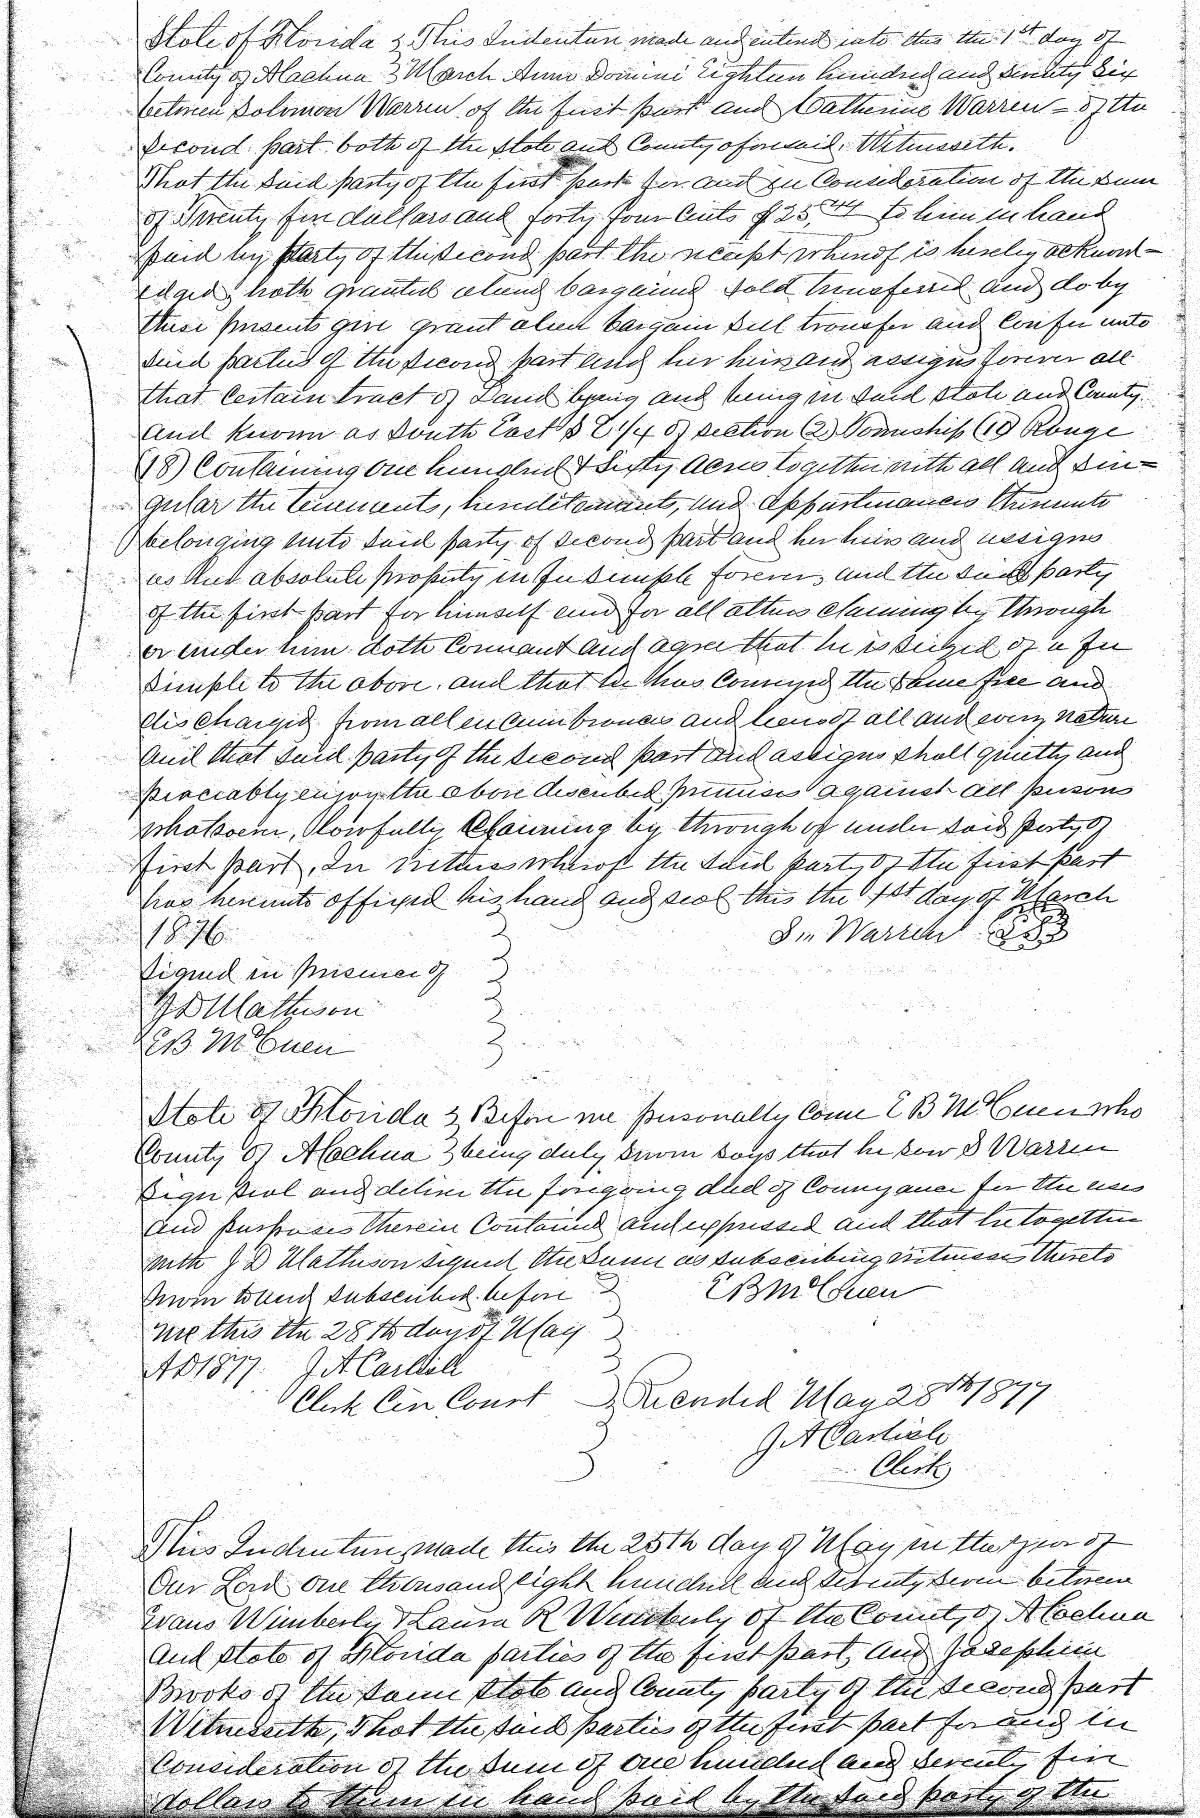 State of Florida } This Indenture made and enterd into this the 1st day of
County of Alachua } March Anno Domini Eighteen hundred and Seventy Six
between Solomon Warren of the first part and Catherine Warren = of the
second part both of the state and County aforesaid, Witnesseth.
That the said party of the first part for and in Consideration of the sum
of Twenty five dollars and forty four Cents $25,44 to him in hand
paid by party of the second part the receipt whereof is hereby acknowl-
edged, hath granted aliend bargained sold transferred and do by
these presents give grant alien bargain sell transfer and Confer unto
said parties of the second part and her heirs and assigns forever all
that Certain tract of Land lying and being in said state and County
and known as South East S E 1/4 of section (2) Township (10) Range
(18) Containing one hundred & Sixty Acres together with all and Sin=
gular the tenements, hereditaments, and appartinances thereunto
belonging unto said party of second part and her heirs and assigns
as her absolute property in fee simple forever, and the said party
of the first part for himself and for all others claiming by through
or under him doth Covenant and agree that he is Seized of a fee
simple to the above, and that he has Conveyed the same free and
discharged from all encumbrances and liens of all and every nature
and that said party of the second part and assigns shall quietly and
peaceably enjoy the above described premises against all persons
whatsoever, lawfully Claiming by through or under said party of
first part, In witness whereof the said party of the first part
has hereunto affixed his hand and seal this the 1st day of March
1876. Sn Warren
Signed in presence of
J D Matheson
E B McCuen
State of Florida } Before me personally Come E B McCuen who
County of Alachua } being duly sworn says that he saw S Warren
sign seal and deliver the foregoing deed of Conveyance for the uses
and purposes therein Contained and expressed and that he together
with J D Matheson signed the same as subscribing witnesses thereto
Sworn to and subscribed before } E B McCuen
me this the 28th day of May
A D 1877. J A Carlisle
Clerk Cir Court } Recorded May 28th 1877
J A Carlisle
Clerk
This Indenture, made this the 25th day of May in the year of
Our Lord One thousand eight hundred and seventy seven between
Evans Wimberly & Laura R Wimberly of the County of Alachua
and state of Florida parties of the first part, and Josephine
Brooks of the same state and County party of the second part
Witnesseth, That the said parties of the first part for and in
Consideration of the sum of one hundred and seventy five
dollars to them in hand paid by the said party of the